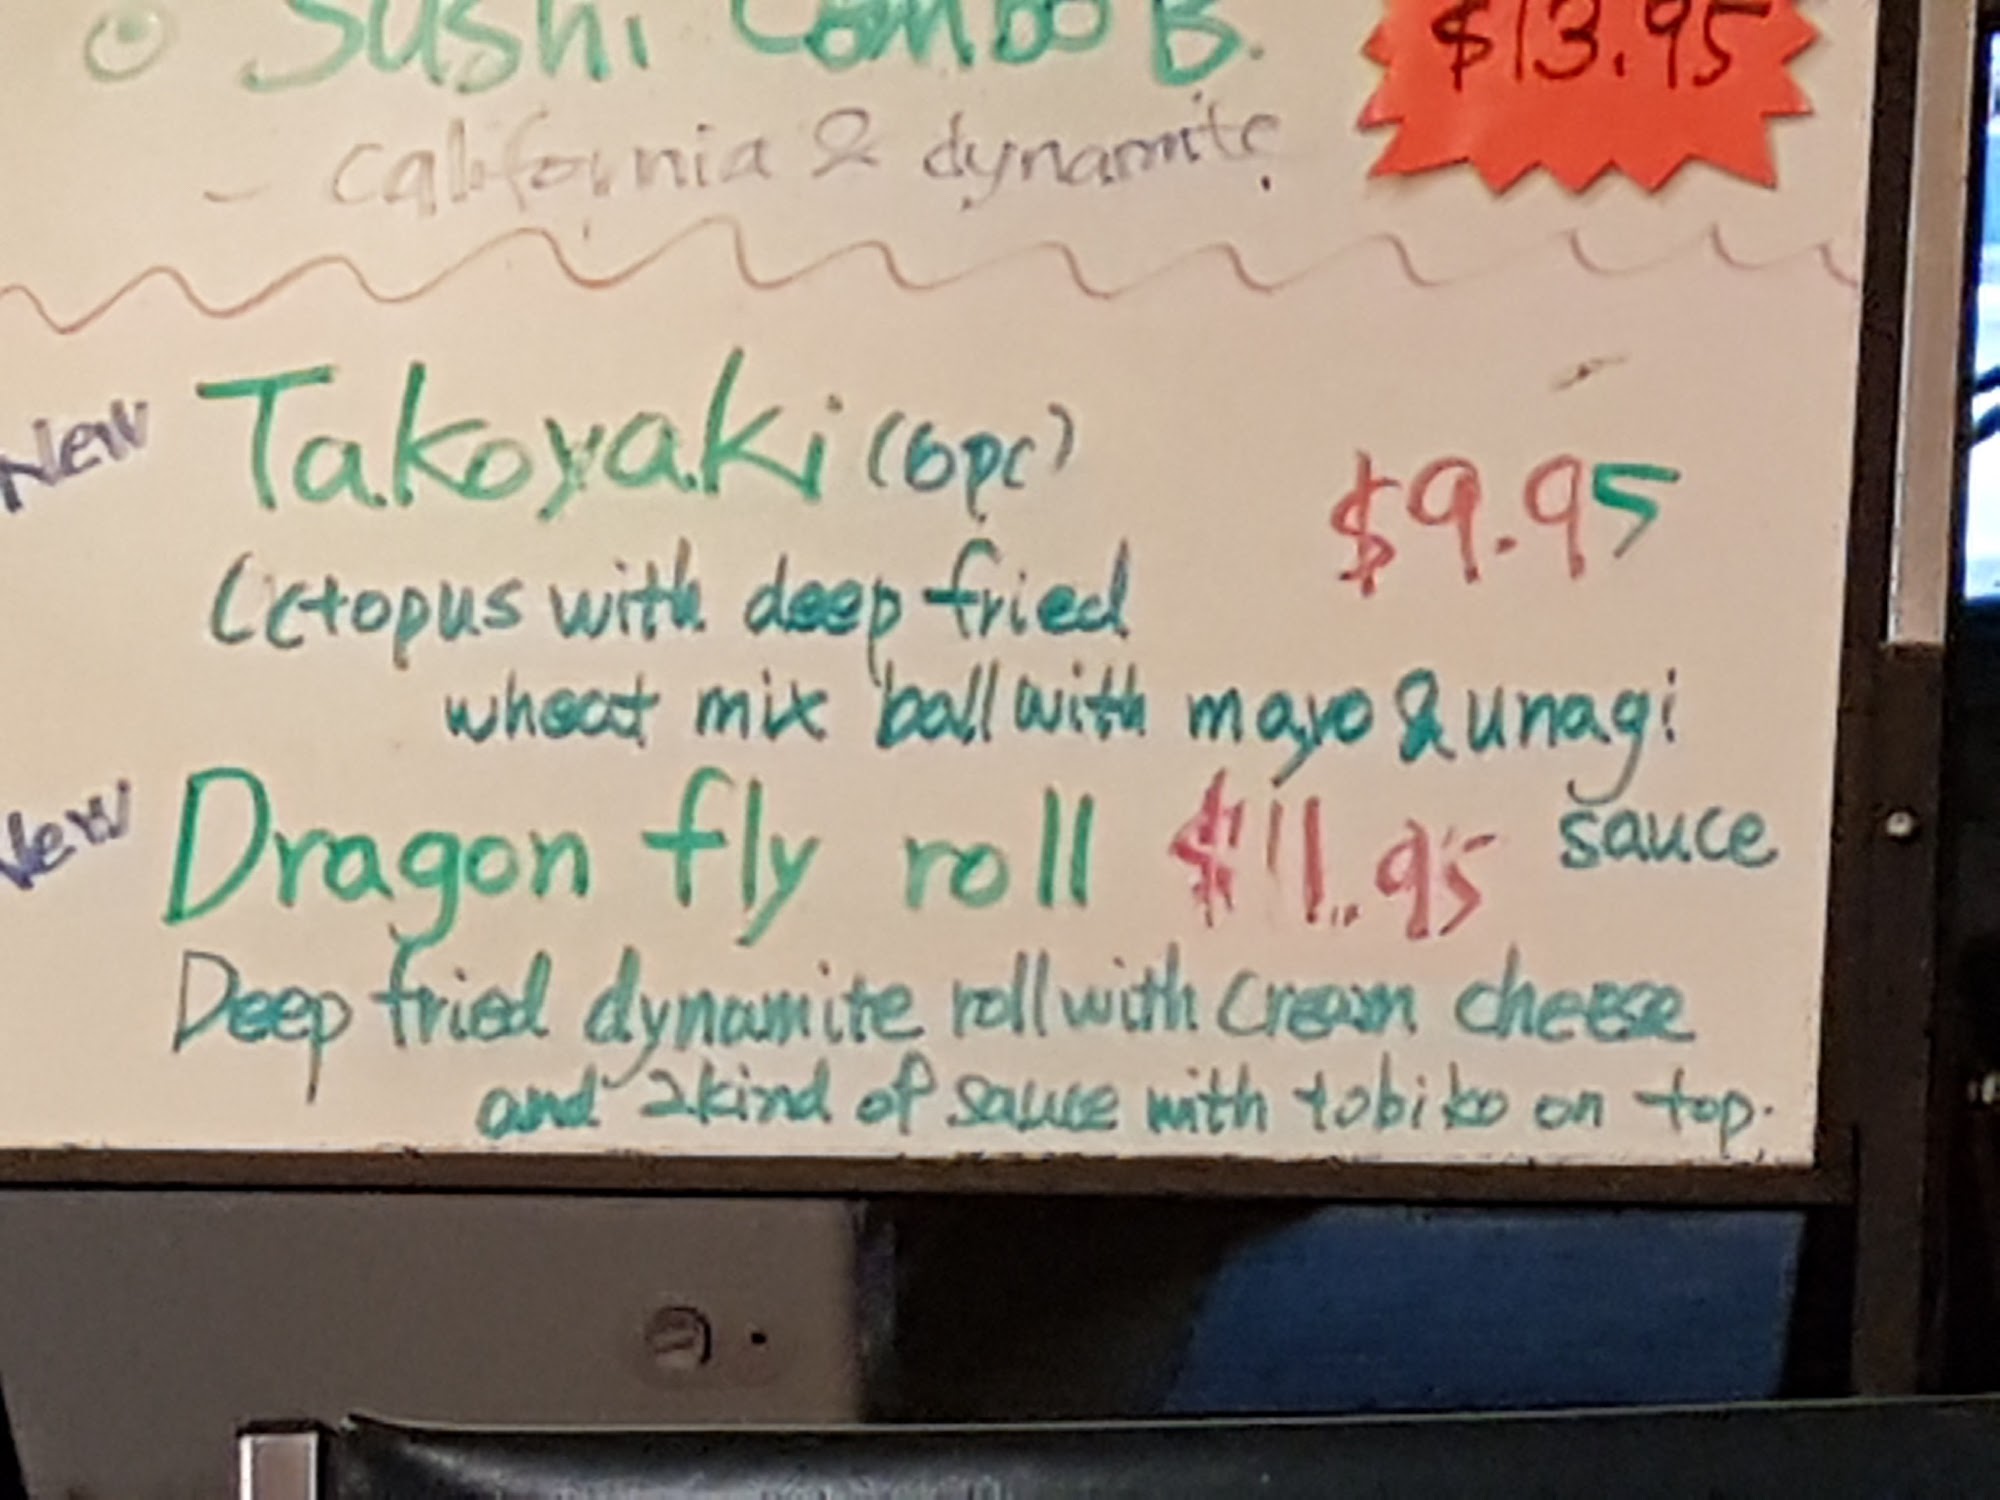 Sushi Combo B.
$13.95
- California & dynamite.
New Takoyaki (6pc)
$9.95
Octopus with deep fried
wheat mix ball with mayo & unagi
sauce
New Dragon fly roll $11.95
Deep fried dynamite roll with cream cheese
and 2kind of sauce with tobiko on top.